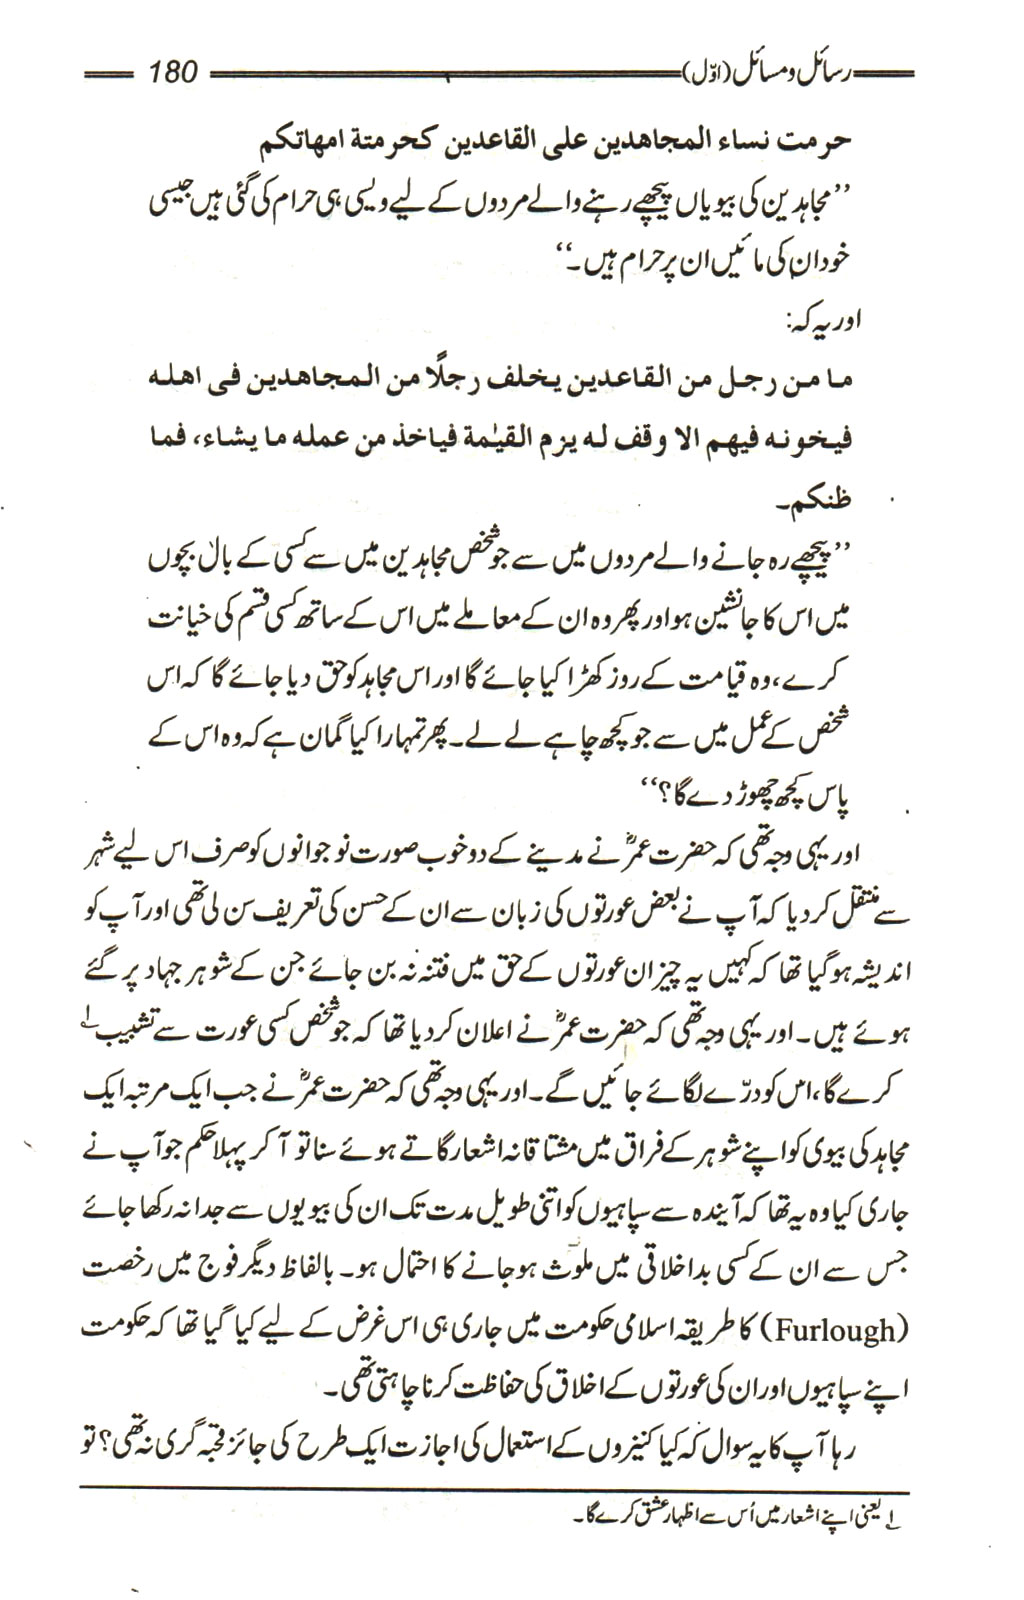 رسائل و مسائل (اوّل) 180
حرمت نساء المجاهدين على القاعدين كحرمتة امهاتكم
’’مجاہدین کی بیویاں پیچھے رہنے والے مردوں کے لیے ویسی ہی حرام کی گئی ہیں جیسی
خود ان کی مائیں ان پر حرام ہیں۔‘‘
اور یہ کہ:
ما من رجل من القاعدين يخلف رجلًا من المجاهدين فى اهله
فيخونه فيهم الا وقف له يزم القيٰمة فياخذ من عمله ما يشاء، فما
ظنكم۔
’’پیچھے رہ جانے والے مردوں میں سے جو شخص مجاہدین میں سے کسی کے بال بچوں
میں اس کا جانشین ہو اور پھر وہ ان کے معاملے میں اس کے ساتھ کسی قسم کی خیانت
کرے، وہ قیامت کے روز کھڑا کیا جائے گا اور اس مجاہد کو حق دیا جائے گا کہ اس
شخص کے عمل میں سے جو کچھ چاہے لے لے۔ پھر تمہارا کیا گمان ہے کہ وہ اس کے
پاس کچھ چھوڑ دے گا؟‘‘
اور یہی وجہ تھی کہ حضرت عمرؓ نے مدینے کے دو خوب صورت نوجوانوں کو صرف اس لیے شہر
سے منتقل کر دیا کہ آپ نے بعض عورتوں کی زبان سے ان کے حسن کی تعریف سن لی تھی اور آپ کو
اندیشہ ہو گیا تھا کہ کہیں یہ چیز ان عورتوں کے حق میں فتنہ نہ بن جائے جن کے شوہر جہاد پر گئے
ہوئے ہیں۔ اور یہی وجہ تھی کہ حضرت عمرؓ نے اعلان کر دیا تھا کہ جو شخص کسی عورت سے تشبیب ؂۱
کرے گا، اس کو درّے لگائے جائیں گے۔ اور یہی وجہ تھی کہ حضرت عمرؓ نے جب ایک مرتبہ ایک
مجاہد کی بیوی کو اپنے شوہر کے فراق میں مشتاقانہ اشعار گاتے ہوئے سنا تو آ کر پہلا حکم جو آپ نے
جاری کیا وہ یہ تھا کہ آیندہ سے سپاہیوں کو اتنی طویل مدت تک ان کی بیویوں سے جدا نہ رکھا جائے
جس سے ان کے کسی بد اخلاقی میں ملوّث ہو جانے کا احتمال ہو۔ بالفاظ دیگر فوج میں رخصت
(Furlough) کا طریقہ اسلامی حکومت میں جاری ہی اس غرض کے لیے کیا گیا تھا کہ حکومت
اپنے سپاہیوں اور ان کی عورتوں کے اخلاق کی حفاظت کرنا چاہتی تھی۔
رہا آپ کا یہ سوال کہ کیا کنیزوں کے استعمال کی اجازت ایک طرح کی جائز قحبہ گری نہ تھی؟ تو
؂۱ یعنی اپنے اشعار میں اُس سے اظہار عشق کرے گا۔